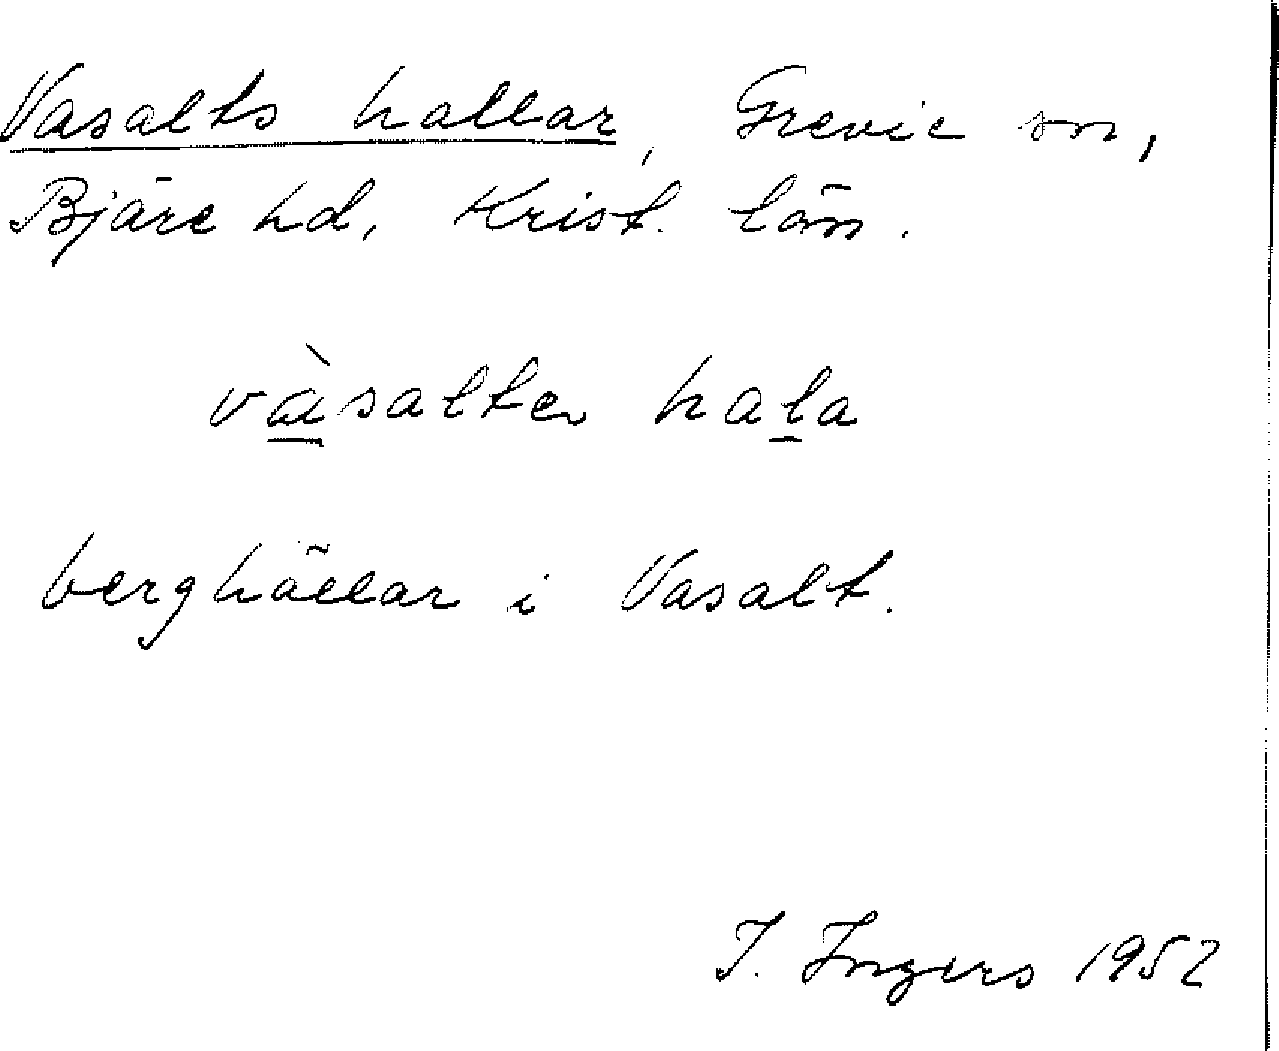 Vasalts hallar, Grevie sn,
Bjäre hd, Krist. län.
vàsalter hala
berghällar i Vasalt.
I. Ingers 1952